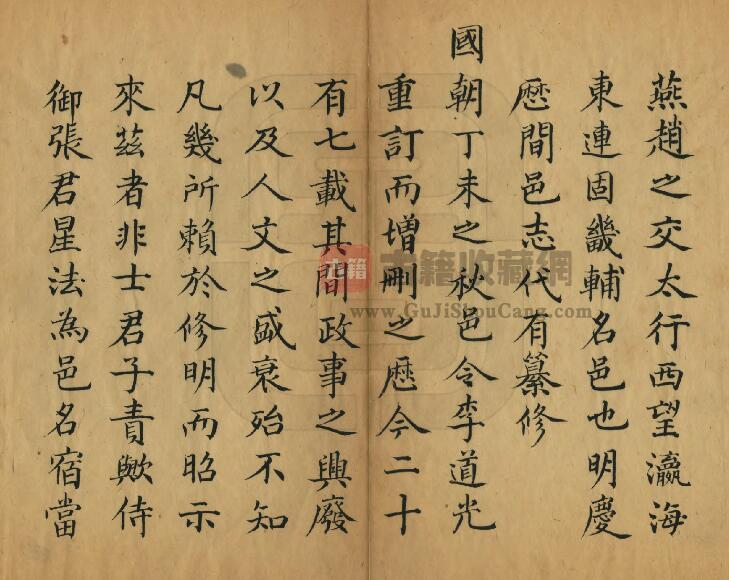 燕趙之交太行西望瀛海
東連固畿輔名邑也明慶
歴間邑志代有纂修
國朝丁未之秋邑令李道光
重訂而增刪之歴今二十
有七載其間政事之興廢
以及人文之盛衰殆不知
凡幾所賴於修明而昭示
來茲者非士君子責歟侍
御張君星法為邑名宿當
古籍
古籍收藏網
www.GuJiShouCang.com